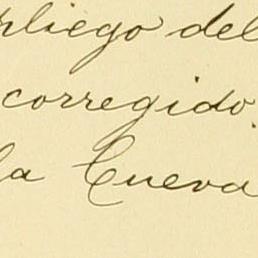 pliego del
corregido.
la Cueva